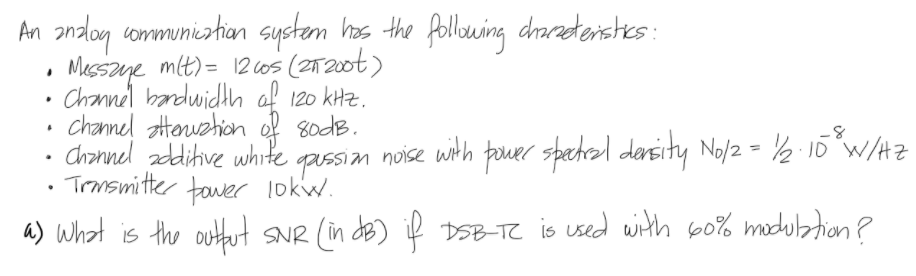 An analog communication system has the following characteristics:
• Message m(t) = 12 cos (2π200t)
• Channel bandwidth of 120 kHz.
• Channel attenuation of 80dB.
• Channel additive white gaussian noise with power spectral density No/2 = 1/2 · 10⁻⁸ W/Hz
• Transmitter power 10kW.
a) What is the output SNR (in dB) if DSB-TC is used with 60% modulation?